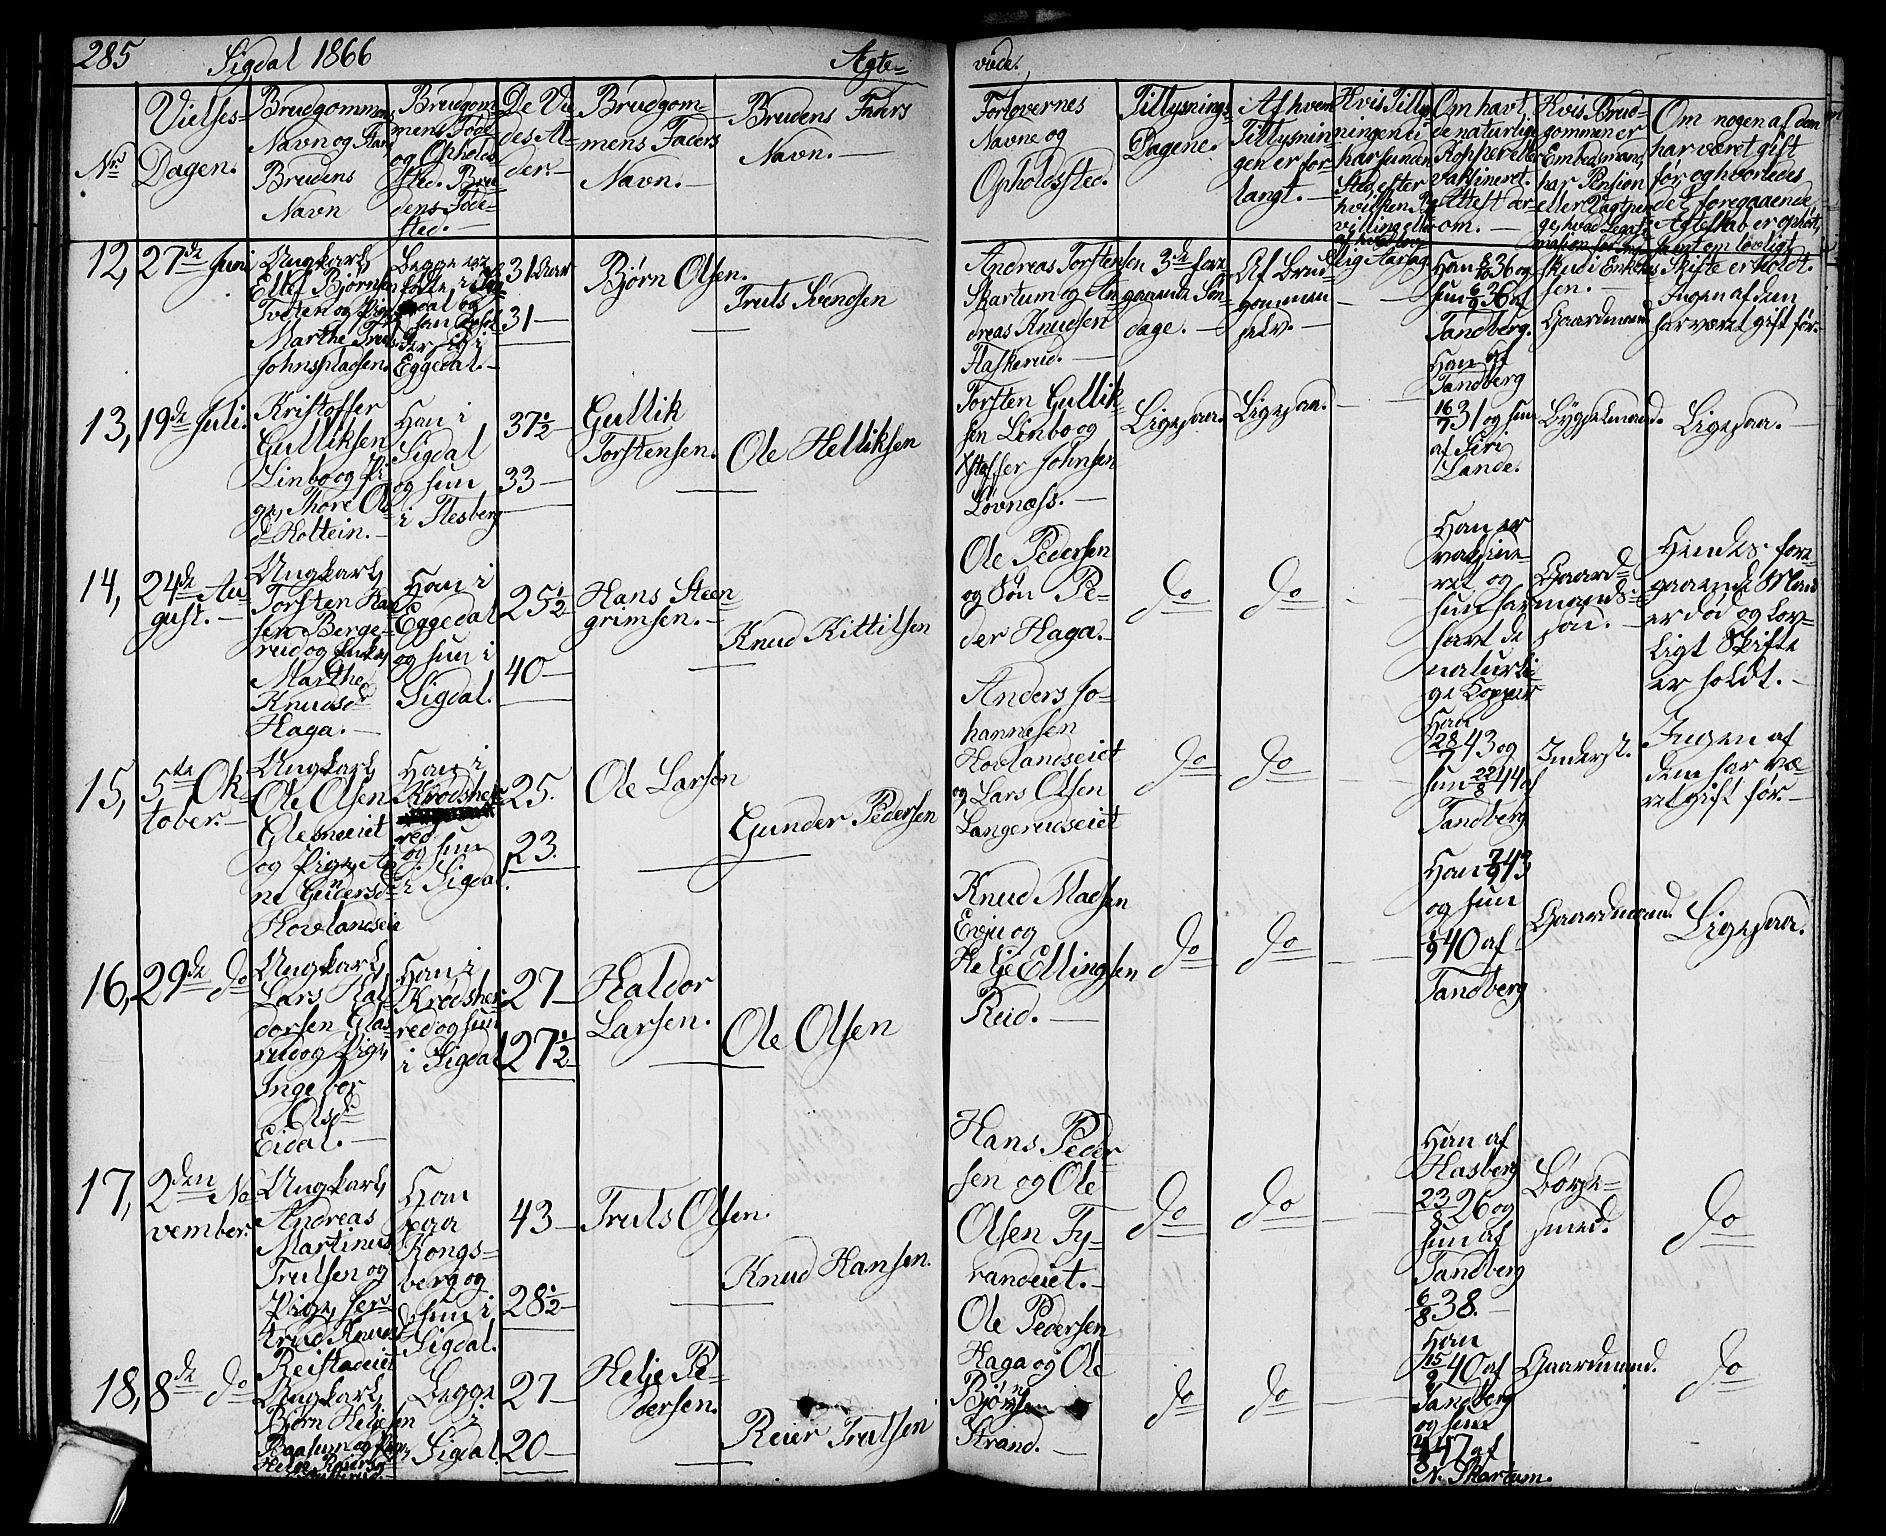 285 Sigdal 1866 Ægte-
viede.
Nr.
Vielses-
Dagen.
Brudgommens
Navn og Stand
Brudens
Navn
Brudgom-
mens Føde
og Opholds
sted. Bru
dens Føde-
sted.
De Vi-
des Al-
der.
Brudgom-
mens Faders
Navn.
Brudens Faders
Navn.
Forlovernes
Navne og
Opholdssted.
Tillysnings-
Dagene.
Af hvem
Tillysnin
gen er for-
langt.
Hvis Tillys
ningen ei
har funden
Sted efter
hvilken Be
villing eller
Om havt
de naturlige
Kopper eller
vaksineret.
Attest der-
om.
Hvis Brud-
gommen er
Embedsmand,
har Pension
eller Vagtpen
ge, hvad Legit
Om nogen af dem
har været gift
før og hvorledes
det foregaaende
Ægteskab er ophørt,
samt om lovligt
Skifte er holdt.
12, 27de Juni
Ungkarl
Ellef Bjørnsen
Tveten og Pige
Marthe Truls
Johnspladsen.
Begge ere
Eggedal.
31 Aar
31
Bjørn Olsen.
Truls Svendsen
Andreas Torstensen
Skartum og An
dreas Knudsen
Flaskerud.
3de fore
gaaende Søn
dage.
Af Brud
gommen
selv.
Han 8/10 36 og
hun 6/9 36 af
Tandberg.
Gaardmand
Ingen af dem
har været gift før.
13, 19de Juli.
Kristoffer
Gulliksen
Linbo og Pi
ge Thore Ols
d Holtein.
Han i
Sigdal
og hun
i Flesberg
37½
33
Gullik
Torstensen.
Ole Helliksen
Torsten Gullik-
sen Linbo og
Kstoffer Johnsen
Løvnæss.
Ligesaa.
Ligesaa.
Han af
Tandberg
16/7 31 og hun
af
Lande.
Byggelmand.
Ligesaa.
14, 24de Au-
gust.
Ungkarl
Torsten Han
sen Berge-
rud og Enke
Marthe
Knudsd
Haga.
Han i
Eggedal
og hun i
Sigdal.
25½
40
Hans Steen-
grimsen.
Knud Kittilsen
Ole Pedersen
og Søn Pe-
der Haga.
do
do
Han er
vaksine-
ret og
hun har
havt de
naturli-
ge Kopper
Gaard-
mands-
søn.
Hendes fore
gaaende Mand
er død og lov-
ligt Skifte
er holdt.
15, 5te Ok-
tober.
Ungkarl
Ole Olsen
Glesneeiet
og Pige An
ne Gundersd
Hovlandseie
Han i
Krødshe
red
og hun
i Sigdal.
25.
23.
Ole Larsen
Gunder Pedersen
Anders Jo-
hannesen
Hovlandseiet
og Lars Olsen
Langerudseiet
do
do
Han
28/7 43 og
hun 22/8 44 af
Tandberg
Inderst.
Ingen af
dem har væ-
ret gift før.
16, 29de do
Ungkarl
Lars Hal
dorsen Glas
rud og Pige
Ingebor
Olsd
Eidal.
Han i
Krødshe
red og hun
i Sigdal
27
27½
Haldor
Larsen.
Ole Olsen
Knud Madsen
Enju og
Helje Ellingsen
Reid.
do
do
Han 7/9 43
og hun
40 af
Tandberg
Gaardmand.
Ligesaa.
17, 2den No
vember.
Ungkarl
Andreas
Martinus
Trulsen og
Pige
Knud
Reistadeiet
Han
paa
Kongs-
berg og
hun i
Sigdal.
43
28½
Truls Olsen.
Knud Hansen.
Hans Peder
sen og Ole
Olsen Fy-
randeiet.
do
do
Han af
Hasberg
23/8 26 og
hun af
Tandberg
6/8 38.
Børse-
smed.
do
18, 8de do
Ungkarl
Bjørn Heljesen
Baasum og Pige
Helge Reiersd
Begge
i
Sigdal
27
20
Helje Pe-
dersen.
Reier Trulsen
Ole Pedersen
Haga og Ole
Bjørnsen
Strand.
do
do
Han
15/2 40 af
Tandberg
og hun
47 af
N. Skartum.
Gaardmand.
do